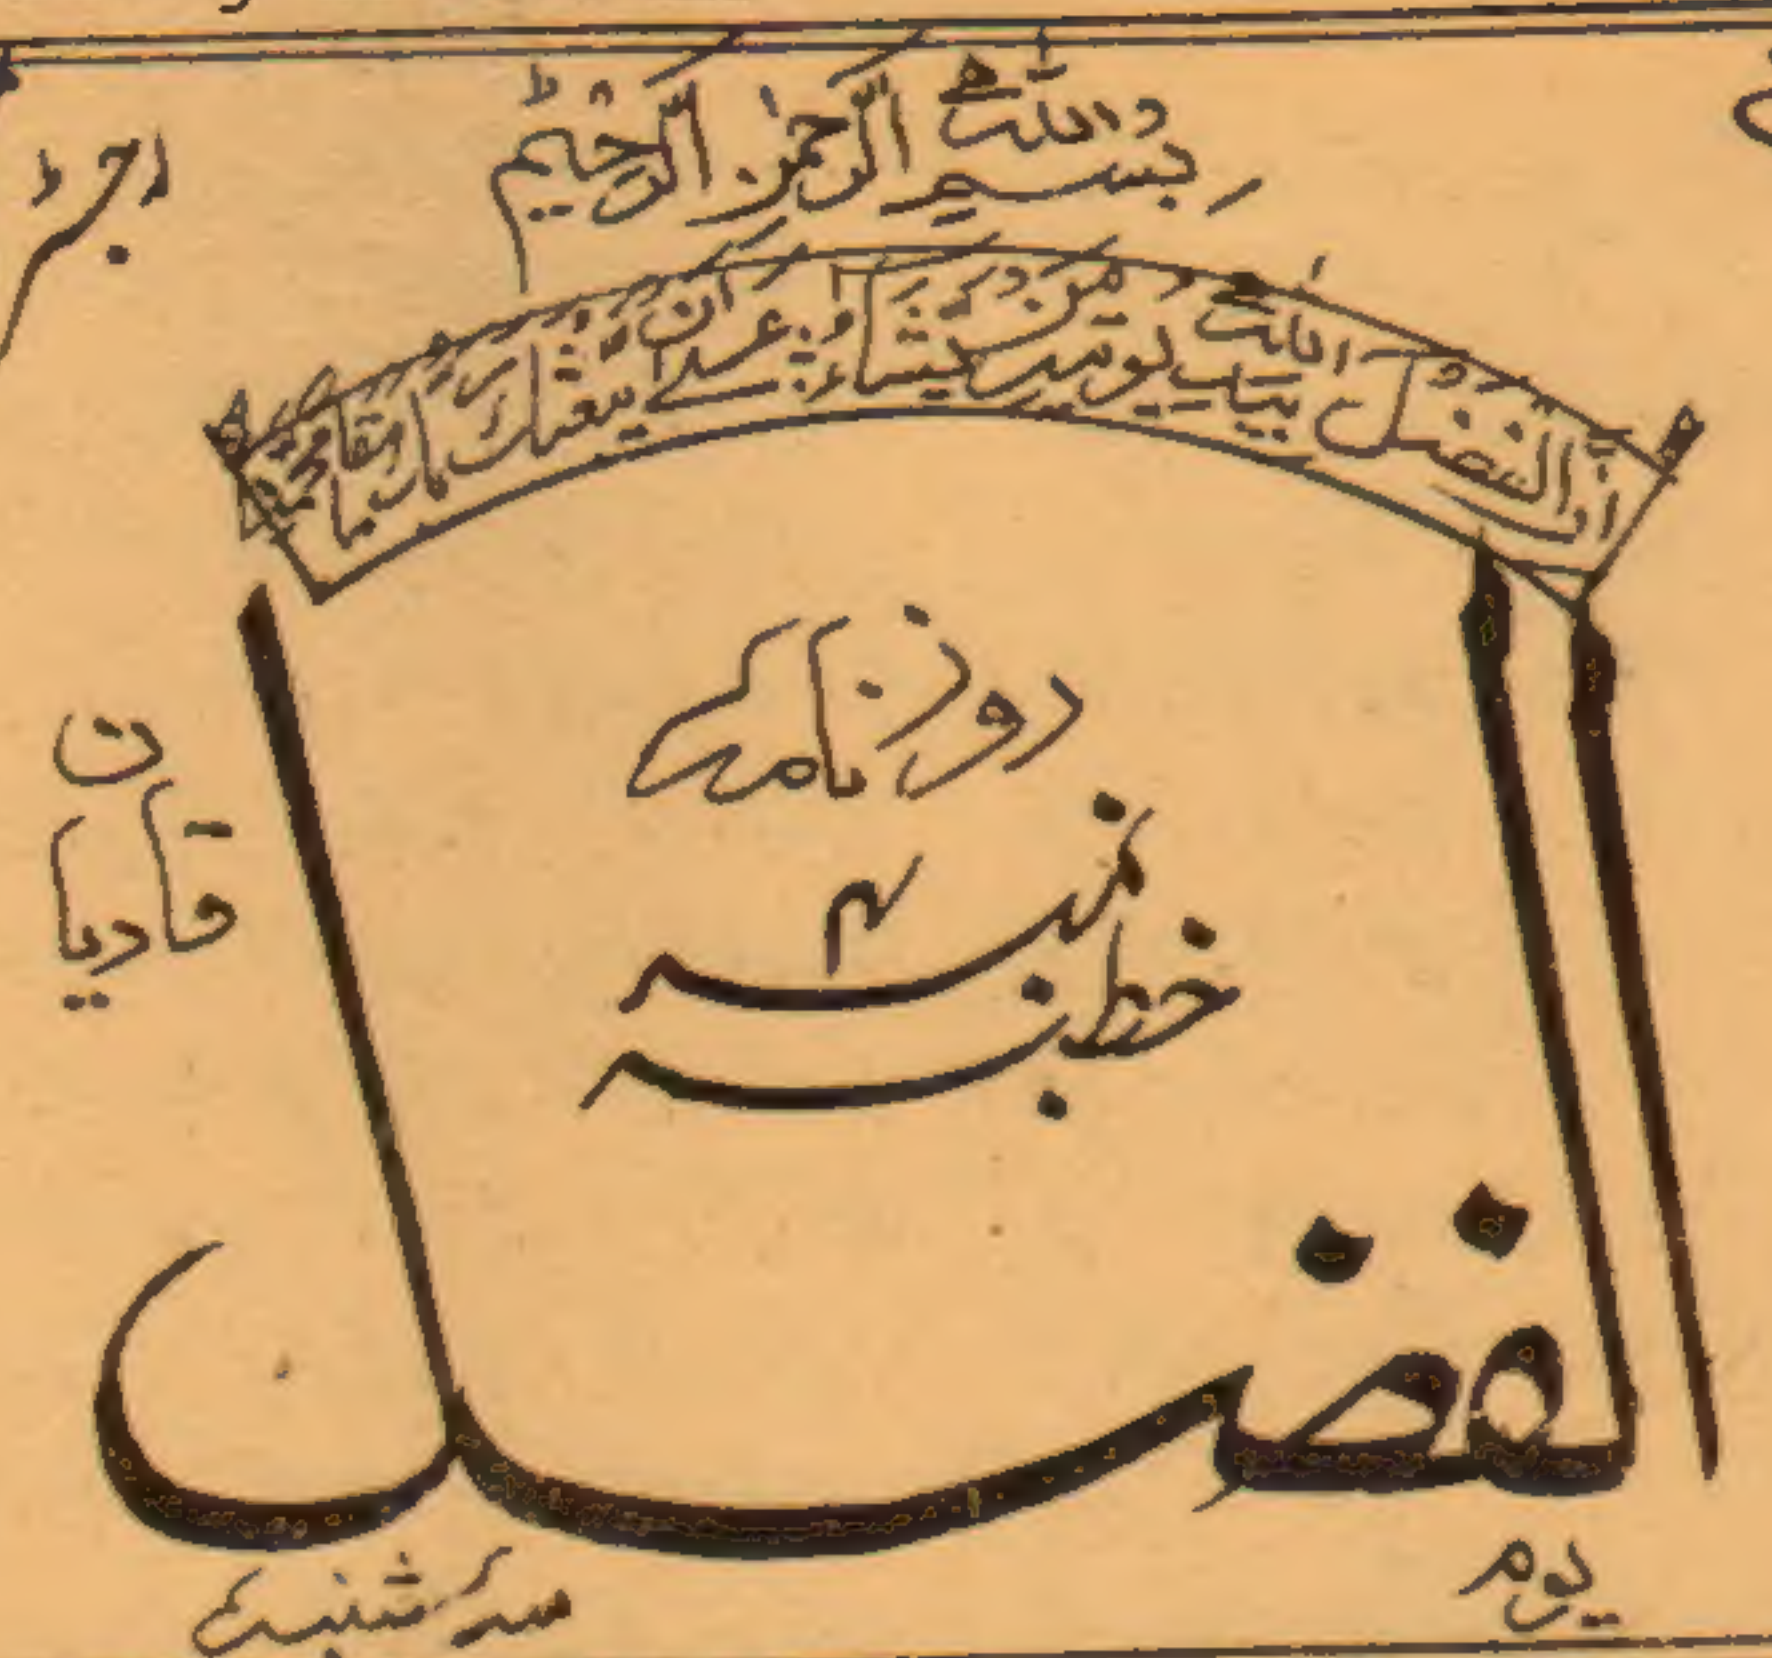 بِسْمِ اللّٰهِ الرَّحْمٰنِ الرَّحِيْمِ
اِنَّ الْفَضْلَ بِيَدِ اللّٰهِ يُؤْتِيْهِ مَنْ يَّشَآءُ عَسٰۤى اَنْ يَّبْعَثَكَ رَبُّكَ مَقَامًا مَّحْمُوْدًا
روزنامہ
قادیان
خطبہ نمبر ۴
الفضل
یوم سہ شنبہ